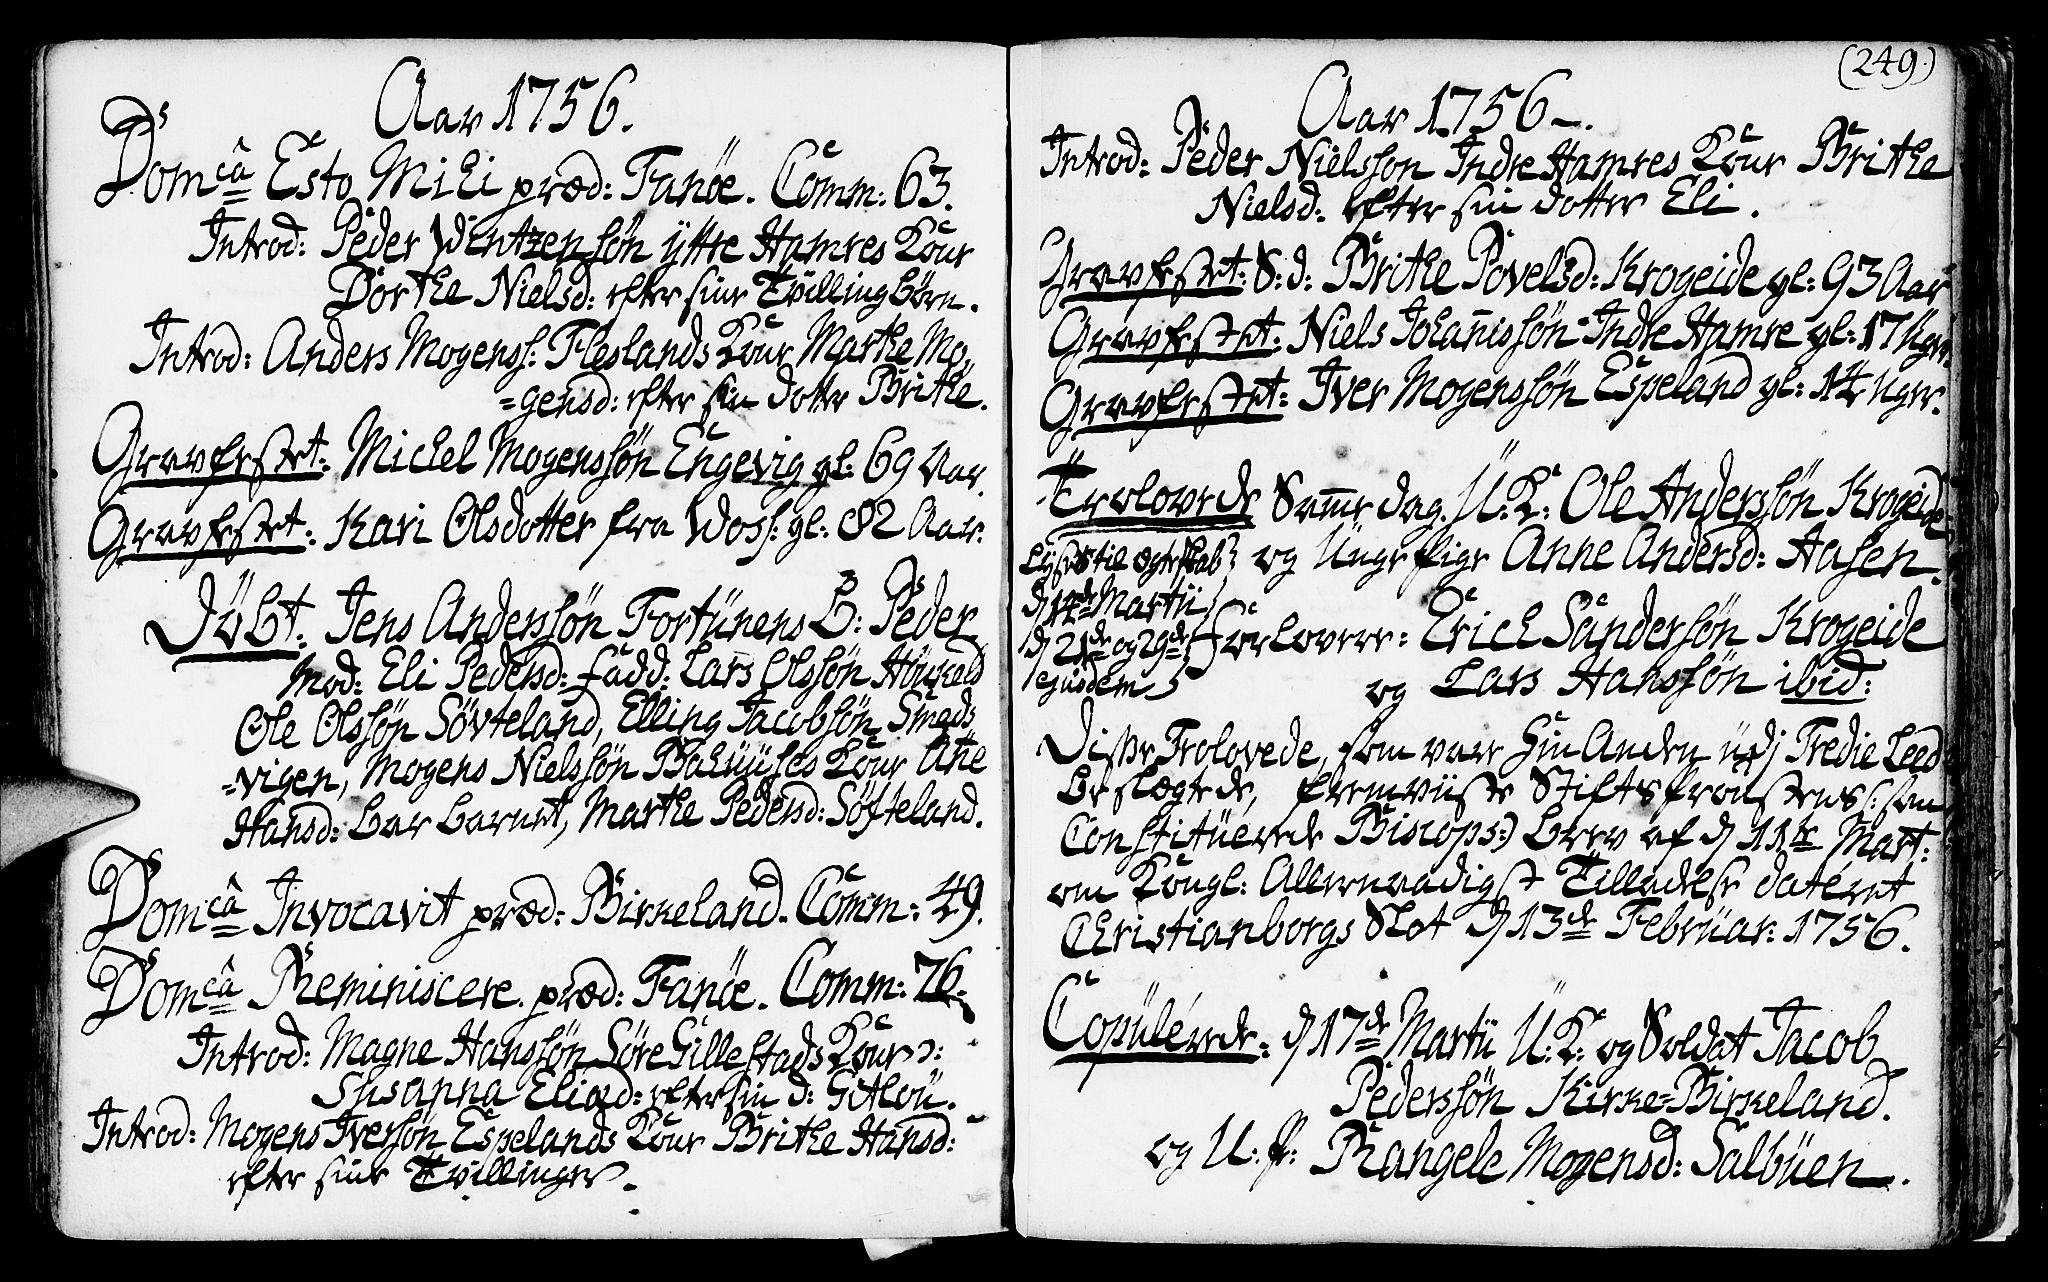 Aar 1756.
Domcâ Esto Mihi præd: Fanöe. Comm: 63.
Introd: Peder Wentzensön ÿttre Hamres Kone
Dorthe Nielsd: efter sine Tvilling börn.
Introd: Anders Mogenss: Fleslands Kone Marthe Mo,
=gensd: efter sin dotter Brithe.
Gravfestet: Michel Mogenssön Engevig gl: 69 Aar.
Gravfestet: Kari Olsdotter fra Woss: gl: 82 Aar.
Döbt. Jens Anderssön Fortünens B: Peder
Mod: Eli Pedersd: fadd: Lars Olssön
Ole Olssön Sövteland, Elling Jacobsön Smeds
=vigen, Mogens Nielssön Kone Añe
Hansd: bar barnet, Marthe Pedersd: Söfteland.
Domcâ Invocavit præd: Birkeland. Comm: 49.
Domcâ Reminiscere præd: Fanöe. Comm: 76.
Introd: Magne Hanssön Söre Gillestads Kone
Susanna Eliæd: efter sin d: Gitlou.
Introd: Mogens Iversön Espelands Kone Brithe Hansd:
efter sine Tvillinger.
(249.)
Aar 1756.
Introd: Peder Nielsson Indre Hamres Kone Brithe
Nielsd: efter sin dotter Eli.
Gravfestet: S: d: Brithe Povelsd: Krogeide gl: 93 Aar
Gravfestet: Niels Johañissön Indre Hamre gl: 17 Uger.
Gravfestet: Iver Mogenssön Espeland gl: 14 Uger.
Trolovede Samedag. U: K: Ole Anderssön Krogeide
og Unge Pige Anne Andersd: Aasen.
Lÿst til ægteskab
d 14de Martii
d 21de og 29de
ejusdem
Forlovere: Erich Sanderssön Krogeide
og Lars Hanssön ibid:
Disse Trolovede, som vare hin Anden üdj Tredie Leed
beslægtede, fremviiste Stiftsprovstens /: som
Constitüerede Biscops:) brev af d 11te Mart:
om Kongl: Allernaadigst Tilladelse dateret
Christianborgs Slot d 13de Februar: 1756.
Copülerede: d 17de Martii U: K: og Soldat Jacob
Pederssön Kirke=Birkeland.
og U: P: Rangele Mogensd: Salbüen.